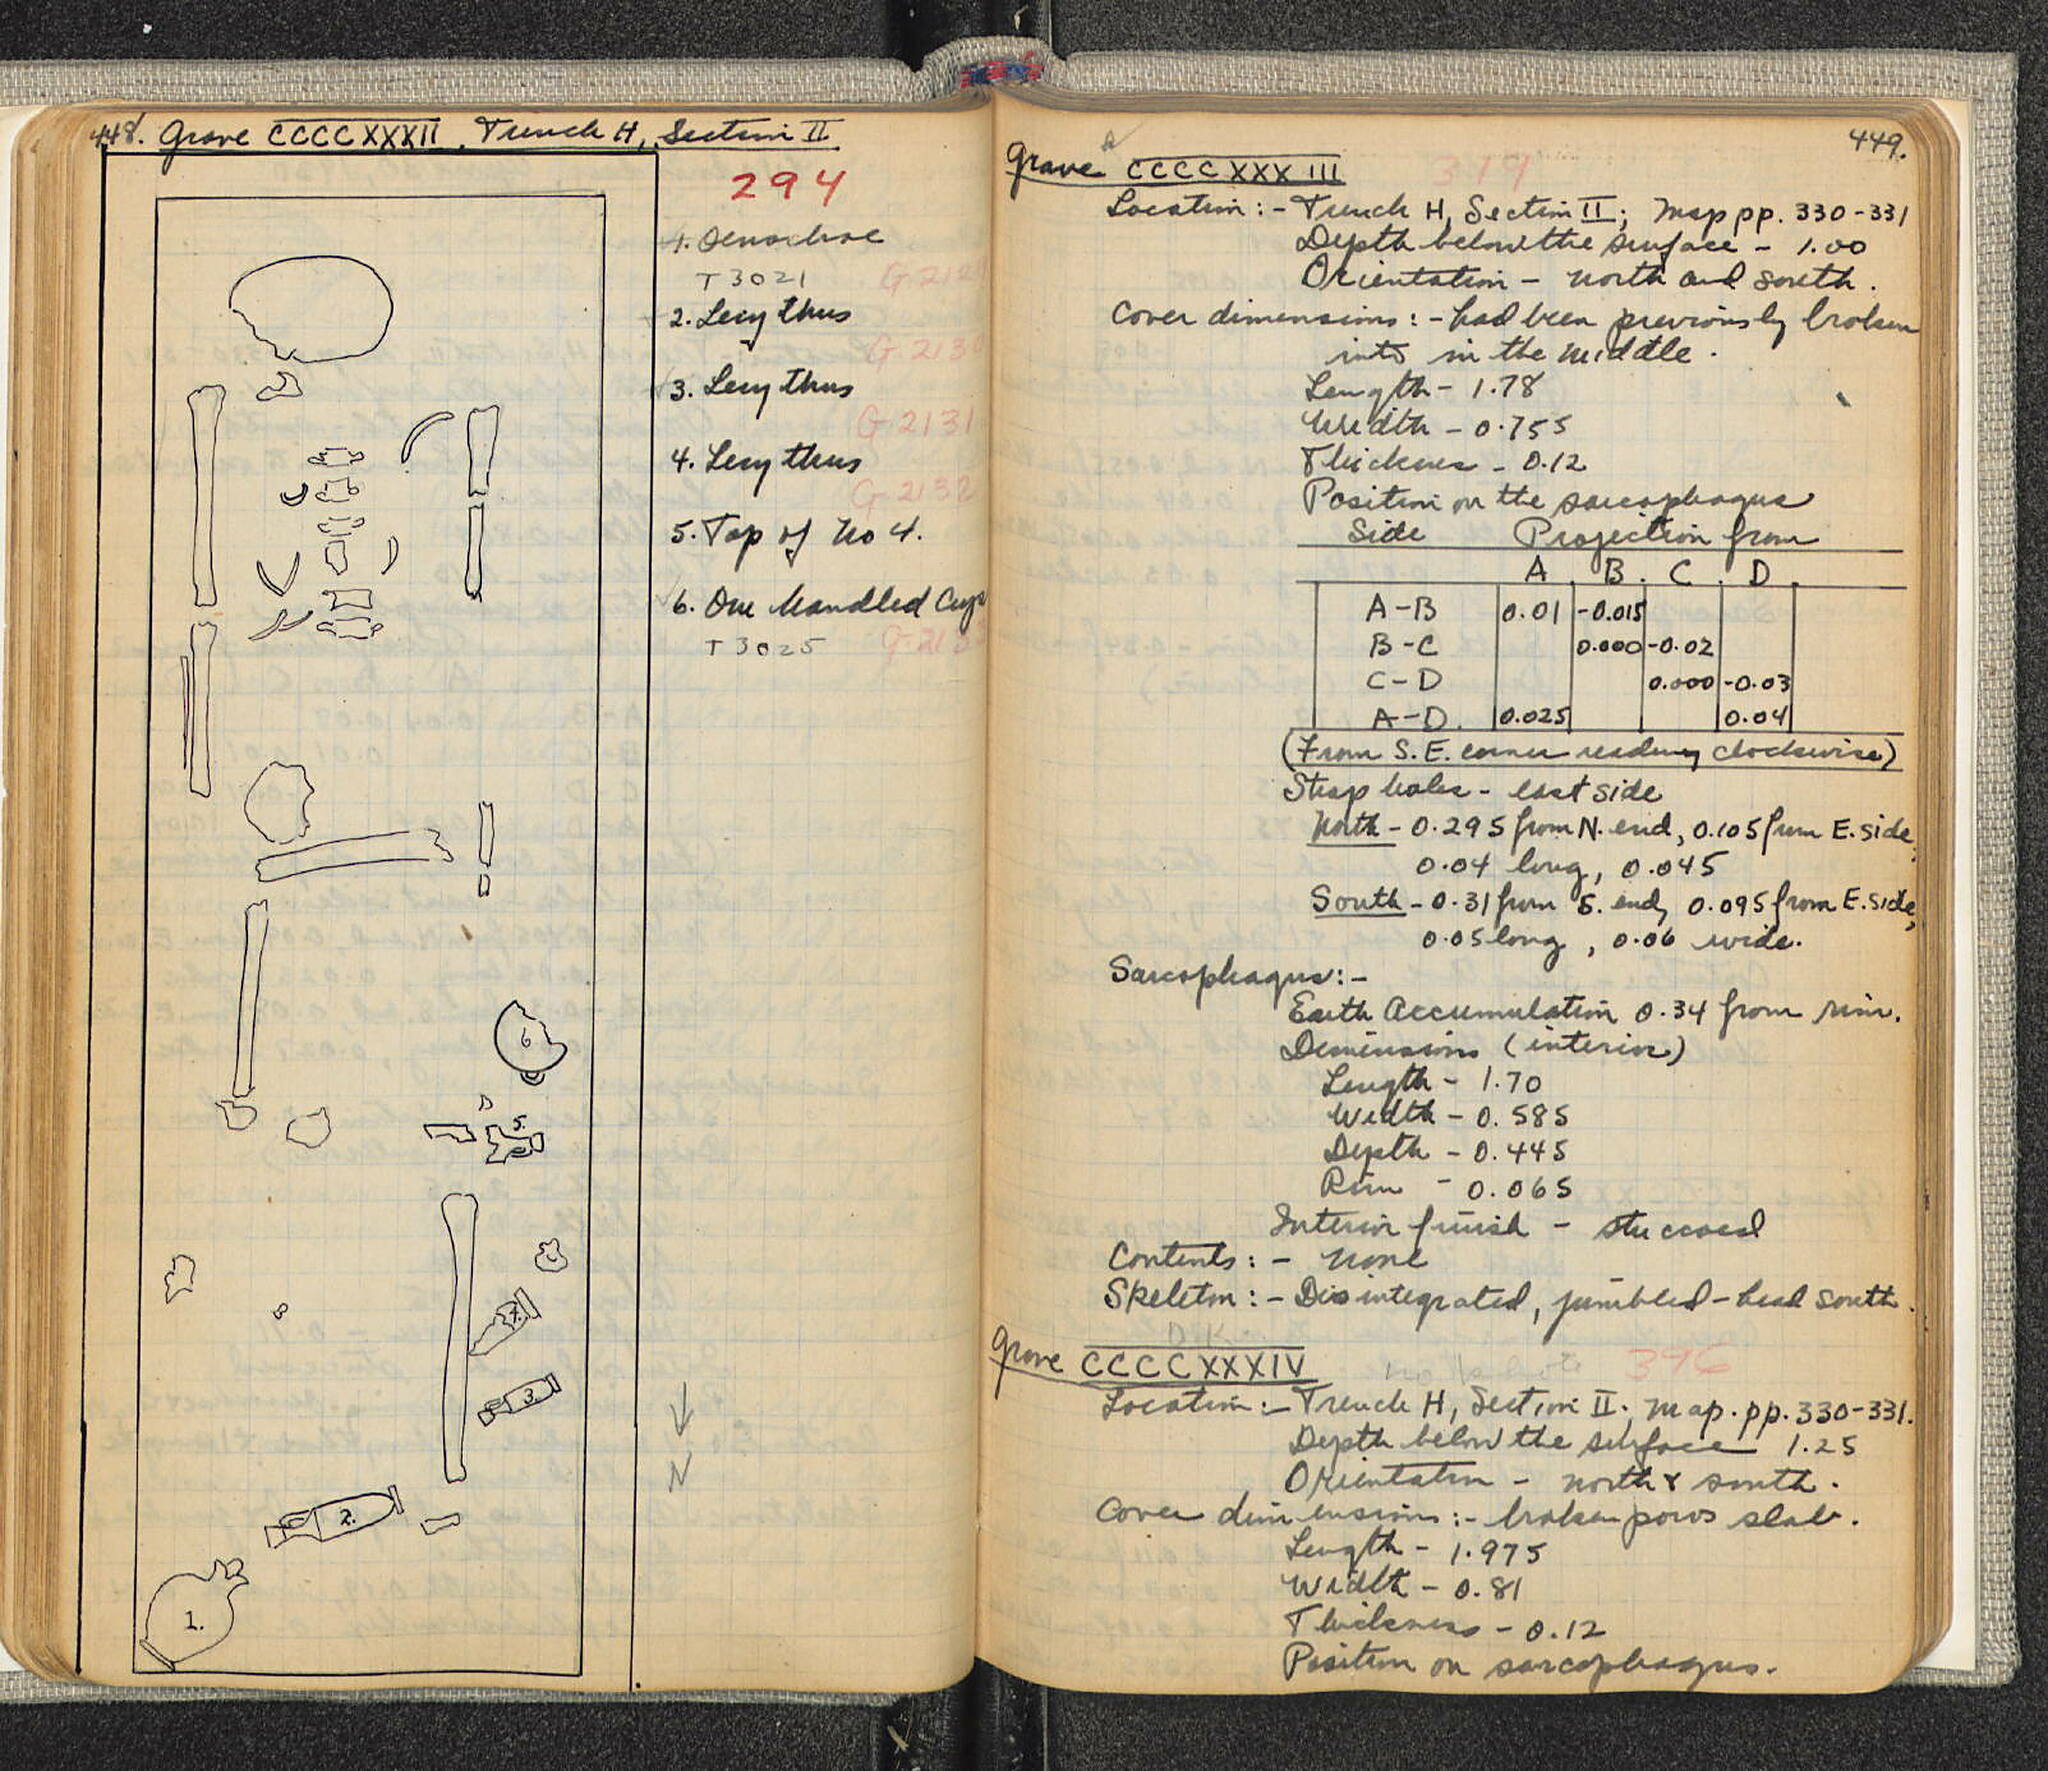 448. Grave CCCCXXXII. Trench H, Section II
294
1. Oenochoe
T 3021
2. Lecythus
G 2130
3. Lecythus
G 2131
4. Lecythus
G 2132
5. Top of No 4.
6. One handled Cup
T 3025
6
5.
4.
3.
2.
1.
N
449.
Grave CCCCXXXIII
319
Location:- Trench H, Section II; Map pp. 330-331
Depth below the surface - 1.00
Orientation - north and south.
Cover dimensions:- had been previously broken
into in the middle.
Length - 1.78
Width - 0.755
Thickness - 0.12
Position on the sarcophagus
Side Projection from
A B C D
A-B 0.01 -0.015
B-C 0.000 -0.02
C-D 0.000 -0.03
A-D. 0.025 0.04
(From S.E. corner reading clockwise)
Strap holes - east side
North - 0.295 from N. end, 0.105 from E. side,
0.04 long, 0.045
South - 0.31 from S. end, 0.095 from E. side,
0.05 long, 0.06 wide.
Sarcophagus:-
Earth Accumulation 0.34 from rim.
Dimensions (interior)
Length - 1.70
Width - 0.585
Depth - 0.445
Rim - 0.065
Interior finish - stuccoed
Contents:- none
Skeleton:- Disintegrated, jumbled - head south.
Grave CCCCXXXIV
396
Location:- Trench H, Section II; Map. pp. 330-331.
Depth below the surface 1.25
Orientation - north & south.
Cover dimensions:- broken poros slab.
Length - 1.975
Width - 0.81
Thickness - 0.12
Position on sarcophagus.